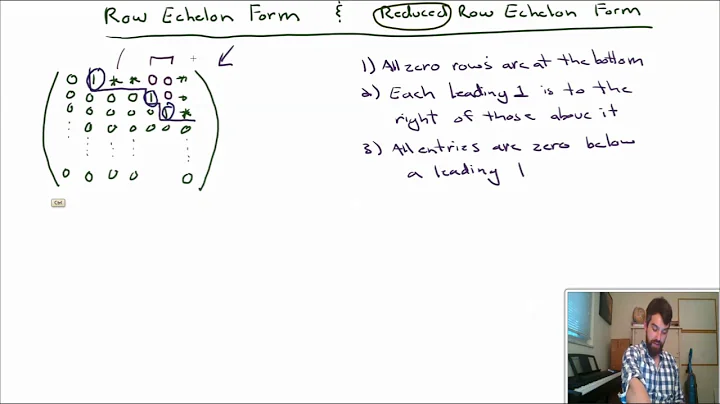 Row Echelon Form & Reduced Row Echelon Form
0 1 * * 0 0 *
0 0 0 0 1 0 *
0 0 0 0 0 1 *
0 0 0 0 0 0
0 0 0 0 0
Ctrl
1) All zero rows are at the bottom
2) Each leading 1 is to the
right of those above it
3) All entries are zero below
a leading 1